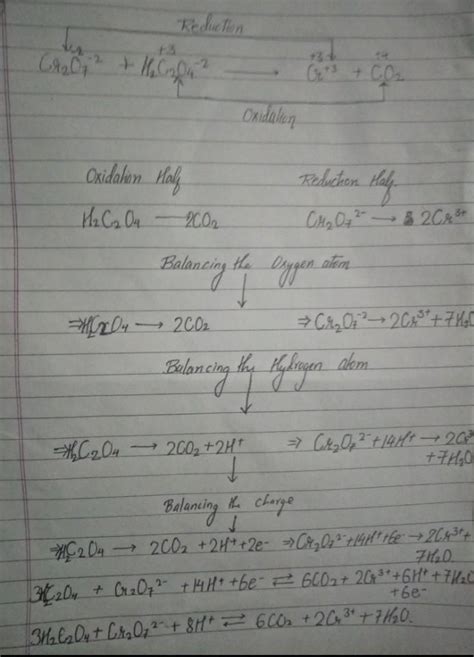 Reduction
+3 +3 +4
Cr₂O₇⁻² + H₂C₂O₄⁻² ⟶ Cr⁺³ + CO₂
Oxidation
Oxidation Half Reduction Half.
H₂C₂O₄ — 2CO₂ Cr₂O₇²⁻ → 2Cr³⁺
Balancing the Oxygen atom
⇒ H₂C₂O₄ → 2CO₂ ⇒ Cr₂O₇⁻² → 2Cr³⁺ + 7H₂O
Balancing the Hydrogen atom
⇒ H₂C₂O₄ → 2CO₂ + 2H⁺ ⇒ Cr₂O₇²⁻ + 14H⁺ → 2Cr³⁺
+ 7H₂O
Balancing the charge
⇒ H₂C₂O₄ → 2CO₂ + 2H⁺ + 2e⁻ ⇒ Cr₂O₇²⁻ + 14H⁺ + 6e⁻ → 2Cr³⁺ +
7H₂O.
3H₂C₂O₄ + Cr₂O₇²⁻ + 14H⁺ + 6e⁻ ⇄ 6CO₂ + 2Cr³⁺ + 6H⁺ + 7H₂O
+ 6e⁻
3H₂C₂O₄ + Cr₂O₇²⁻ + 8H⁺ ⇄ 6CO₂ + 2Cr³⁺ + 7H₂O.